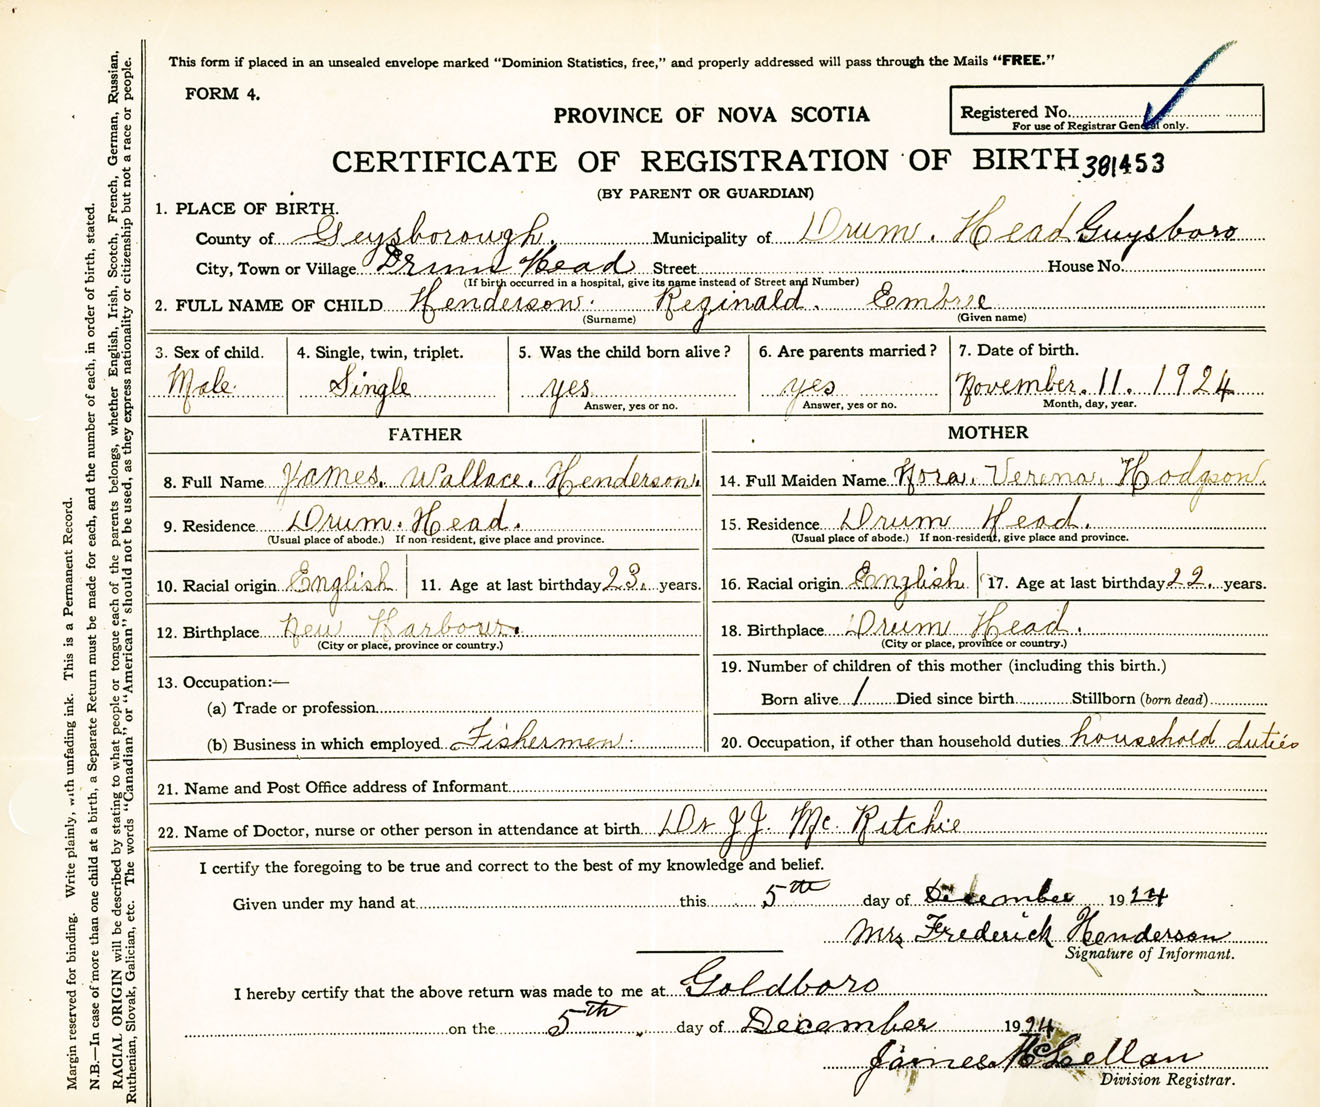 This form if placed in an unsealed envelope marked "Dominion Statistics, free," and properly addressed will pass through the Mails "FREE."
FORM 4.
PROVINCE OF NOVA SCOTIA
Registered No.
For use of Registrar General only.
CERTIFICATE OF REGISTRATION OF BIRTH 381453
(BY PARENT OR GUARDIAN)
1. PLACE OF BIRTH.
County of Geysborough. Municipality of Drum. Head Guysboro
City, Town or Village Drum Head Street House No.
(If birth occurred in a hospital, give its name instead of Street and Number)
2. FULL NAME OF CHILD Henderson. Reginald. Embree
(Surname) (Given name)
3. Sex of child. 4. Single, twin, triplet. 5. Was the child born alive? 6. Are parents married? 7. Date of birth.
Male. Single yes yes November. 11. 1924
Answer, yes or no. Answer, yes or no. Month, day, year.
FATHER MOTHER
8. Full Name James. Wallace. Henderson. 14. Full Maiden Name Nora. Verena. Hodgson.
9. Residence Drum. Head. 15. Residence Drum Head.
(Usual place of abode.) If non-resident, give place and province. (Usual place of abode.) If non-resident, give place and province.
10. Racial origin English 11. Age at last birthday 23. years. 16. Racial origin English 17. Age at last birthday 22. years.
12. Birthplace New Harbour. 18. Birthplace Drum Head.
(City or place, province or country.) (City or place, province or country.)
13. Occupation:— 19. Number of children of this mother (including this birth.)
(a) Trade or profession Born alive 1 Died since birth Stillborn (born dead)
(b) Business in which employed Fishermen. 20. Occupation, if other than household duties household duties
21. Name and Post Office address of Informant
22. Name of Doctor, nurse or other person in attendance at birth Dr J.J. Mc. Ritchie
I certify the foregoing to be true and correct to the best of my knowledge and belief.
Given under my hand at this 5th day of December 1924
Mrs Frederick Henderson
Signature of Informant.
I hereby certify that the above return was made to me at Goldboro
on the 5th day of December 1924
James McLellan
Division Registrar.
Margin reserved for binding. Write plainly, with unfading ink. This is a Permanent Record.
N.B.—In case of more than one child at a birth, a Separate Return must be made for each, and the number of each, in order of birth, stated.
RACIAL ORIGIN will be described by stating to what people or tongue each of the parents belongs, whether English, Irish, Scotch, French, German, Russian,
Ruthenian, Slovak, Galician, etc. The words "Canadian" or "American" should not be used, as they express nationality or citizenship but not a race or people.